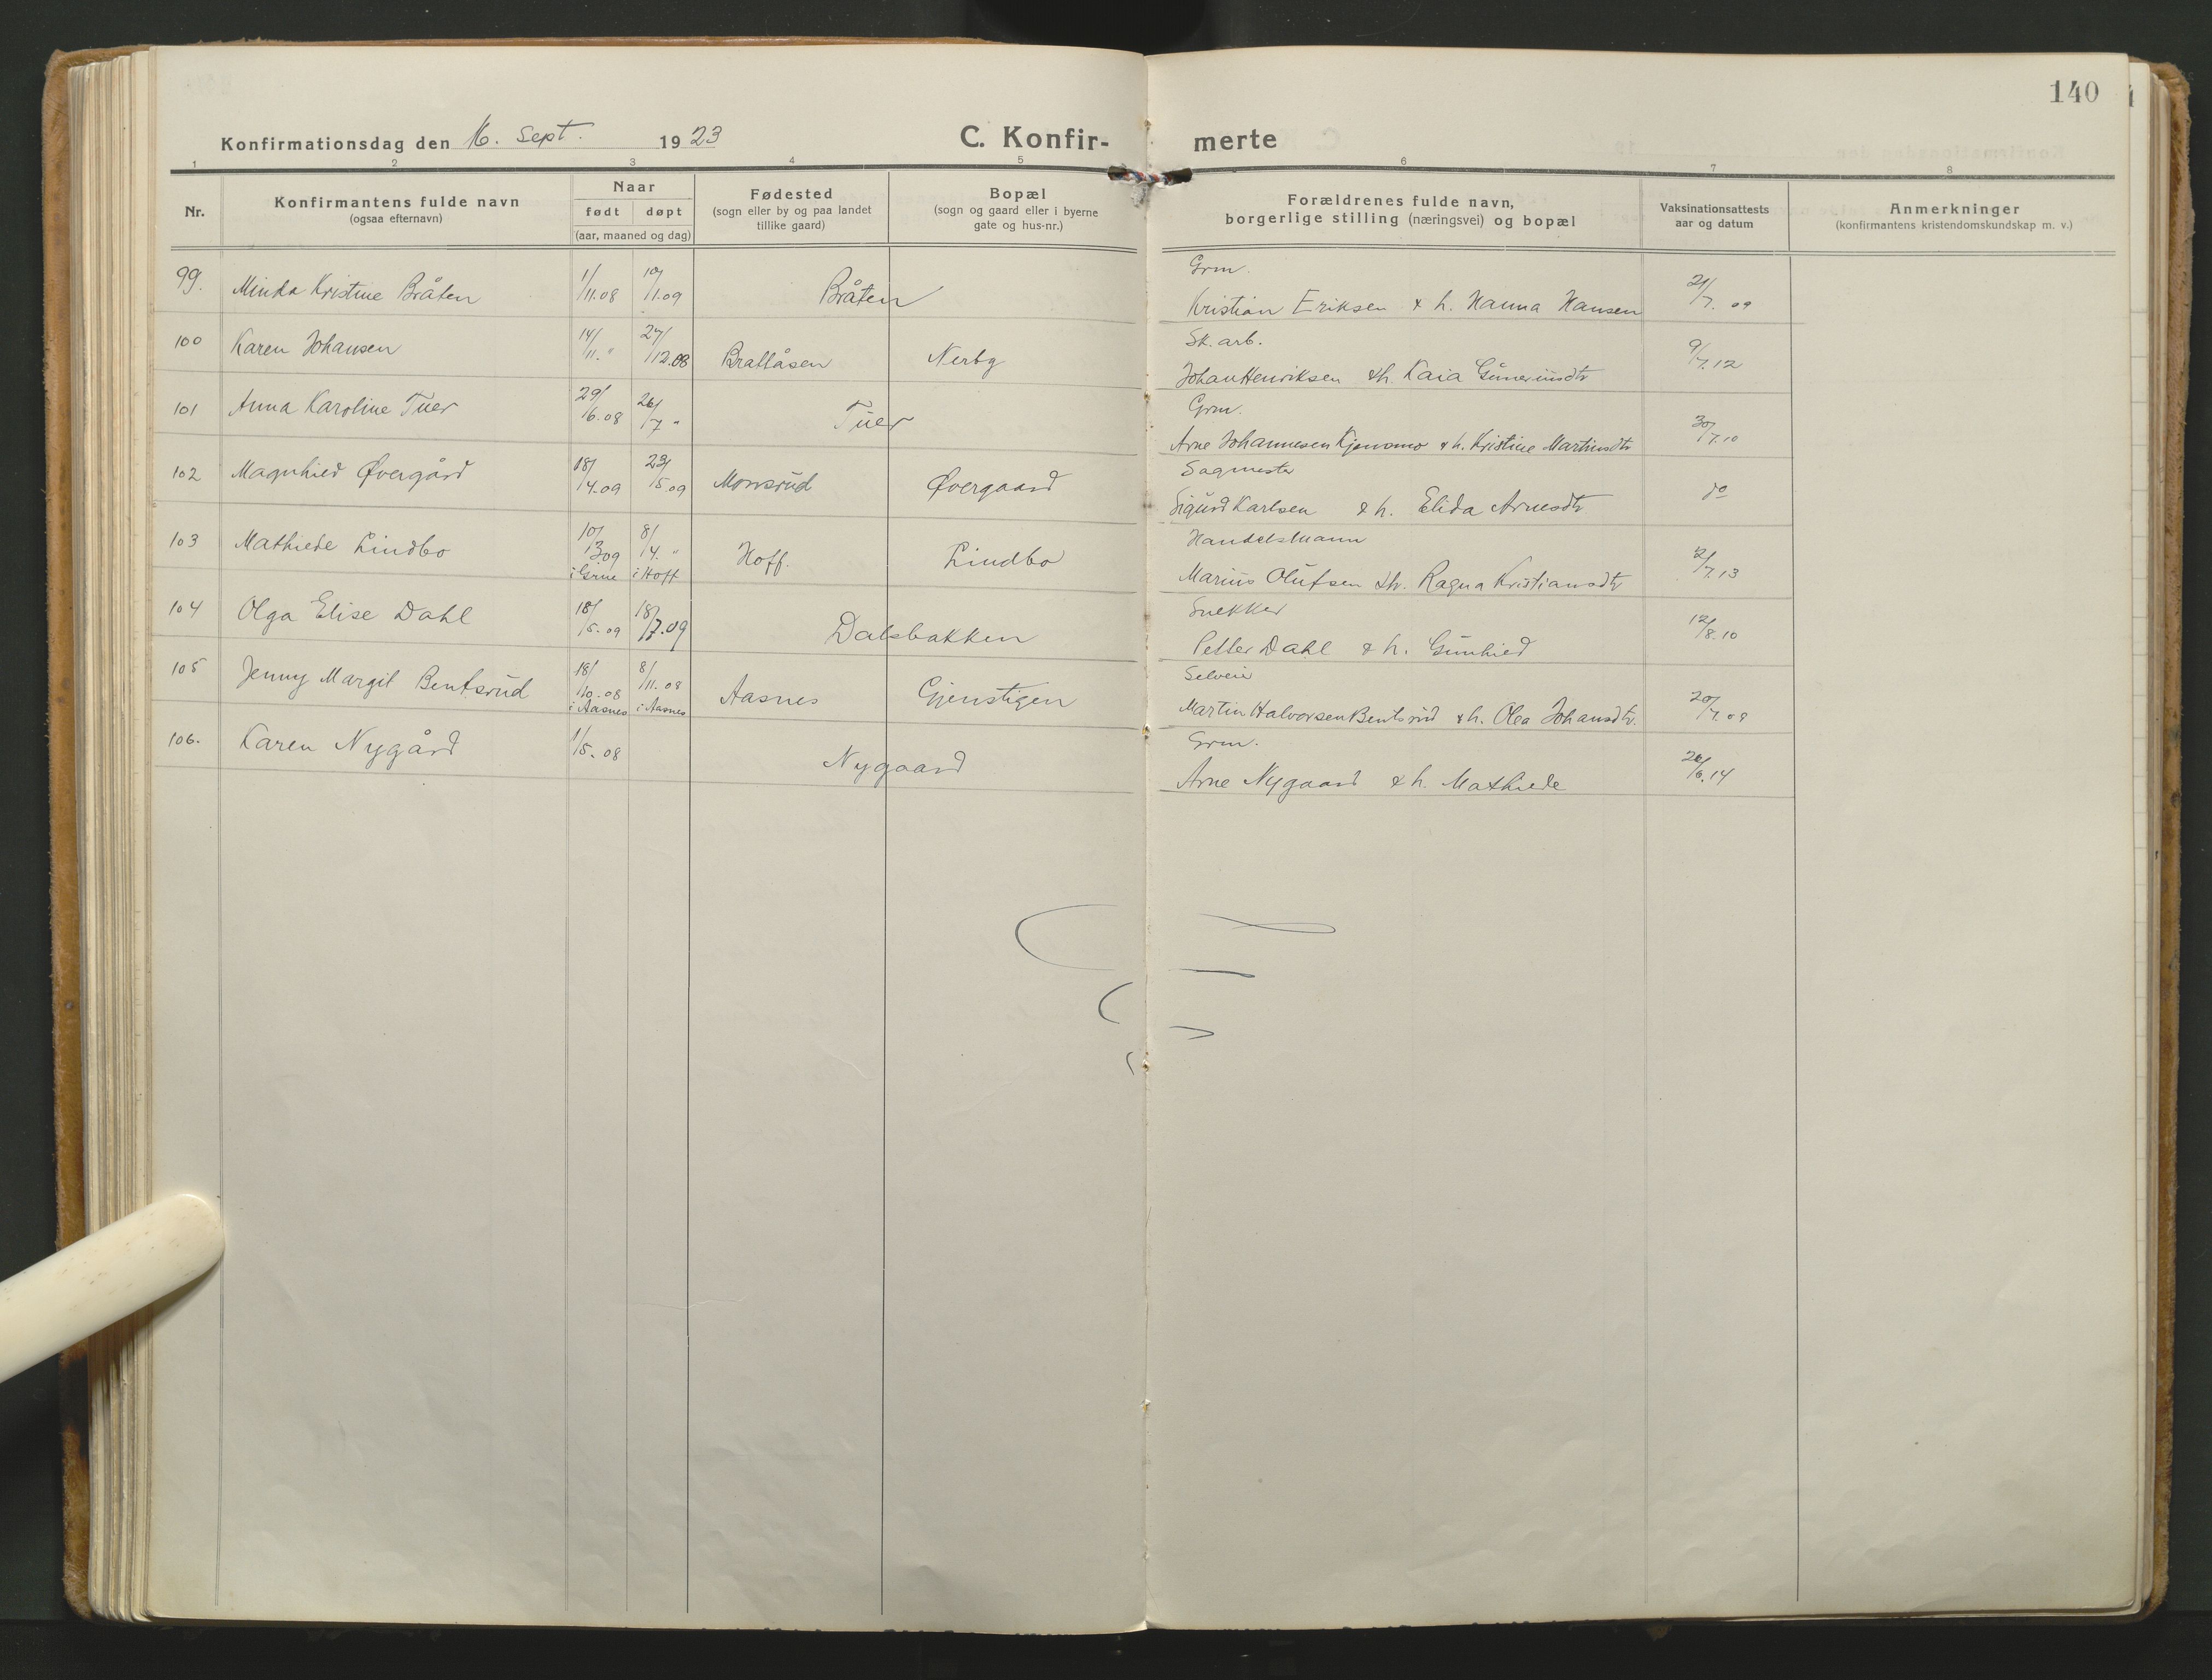 140
Konfirmationsdag den 16. Sept. 1923 C. Konfir- merte
1 2 3 4 5 6 7 8
Nr. Konfirmantens fulde navn (ogsaa efternavn) Naar født døpt (aar, maaned og dag) Fødested (sogn eller by og paa landet tillike gaard) Bopæl (sogn og gaard eller i byerne gate og hus-nr.) Forældrenes fulde navn, borgerlige stilling (næringsvei) og bopæl Vaksinationsattests aar og datum Anmerkninger (konfirmantens kristendomskundskap m. v.)
99. Minda Kristine Bråten 1/11.08 10/1.09 Bråten Grm.
Kristian Eriksen & h. Hanna Hansen 21/7.09
100 Karen Johansen 14/11. " 27/12.08 Brattåsen Nerby Sk. arb.
Johan Henriksen & h. Kaia Guneriusdtr 9/7.12
101 Anna Karoline Tuer 29/6.08 26/7 " Tuer Grm.
Arne Johannesen Kjenomo & h. Kristine Martinsdtr 30/7.10
102 Magnhied Øvergård 18/4.09 23/5.09 Monsrud Øvergaard Sagmester
Sigurd Karlsen & h. Elida Arnesdtr do
103 Mathiede Lindbo 10/3 09 i Grue 8/4. " i Hoff Hoff. Lindbo Handelsmann
Marius Olufsen & h. Ragna Kristiansdtr 2/7.13
104 Olga Elise Dahl 18/5.09 18/7.09 Dalsbakken Snekker
Petter Dahl & h. Gunhied 12/8.10
105 Jenny Margit Bentsrud 18/10.08 i Aasnes 8/11.08 i Aasnes Aasnes Gjenstigen Selveier
Martin Halvorsen Bentsrud & h. Olea Johansdtr. 20/7.09
106. Karen Nygård 1/5.08 Nygaard Grm.
Arne Nygaard & h. Mathiede 26/6.14